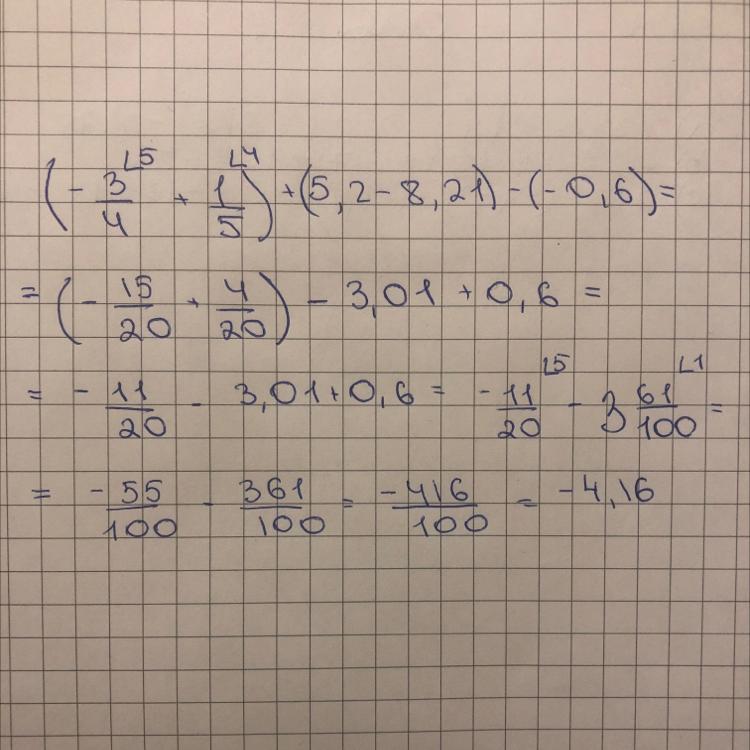 (-3/4 ⌊5 + 1/5 ⌊4) + (5,2 - 8,21) - (-0,6) =
= (-15/20 + 4/20) - 3,01 + 0,6 =
= -11/20 - 3,01 + 0,6 = -11/20 ⌊5 - 3 61/100 ⌊1 =
= -55/100 - 361/100 = -416/100 = -4,16